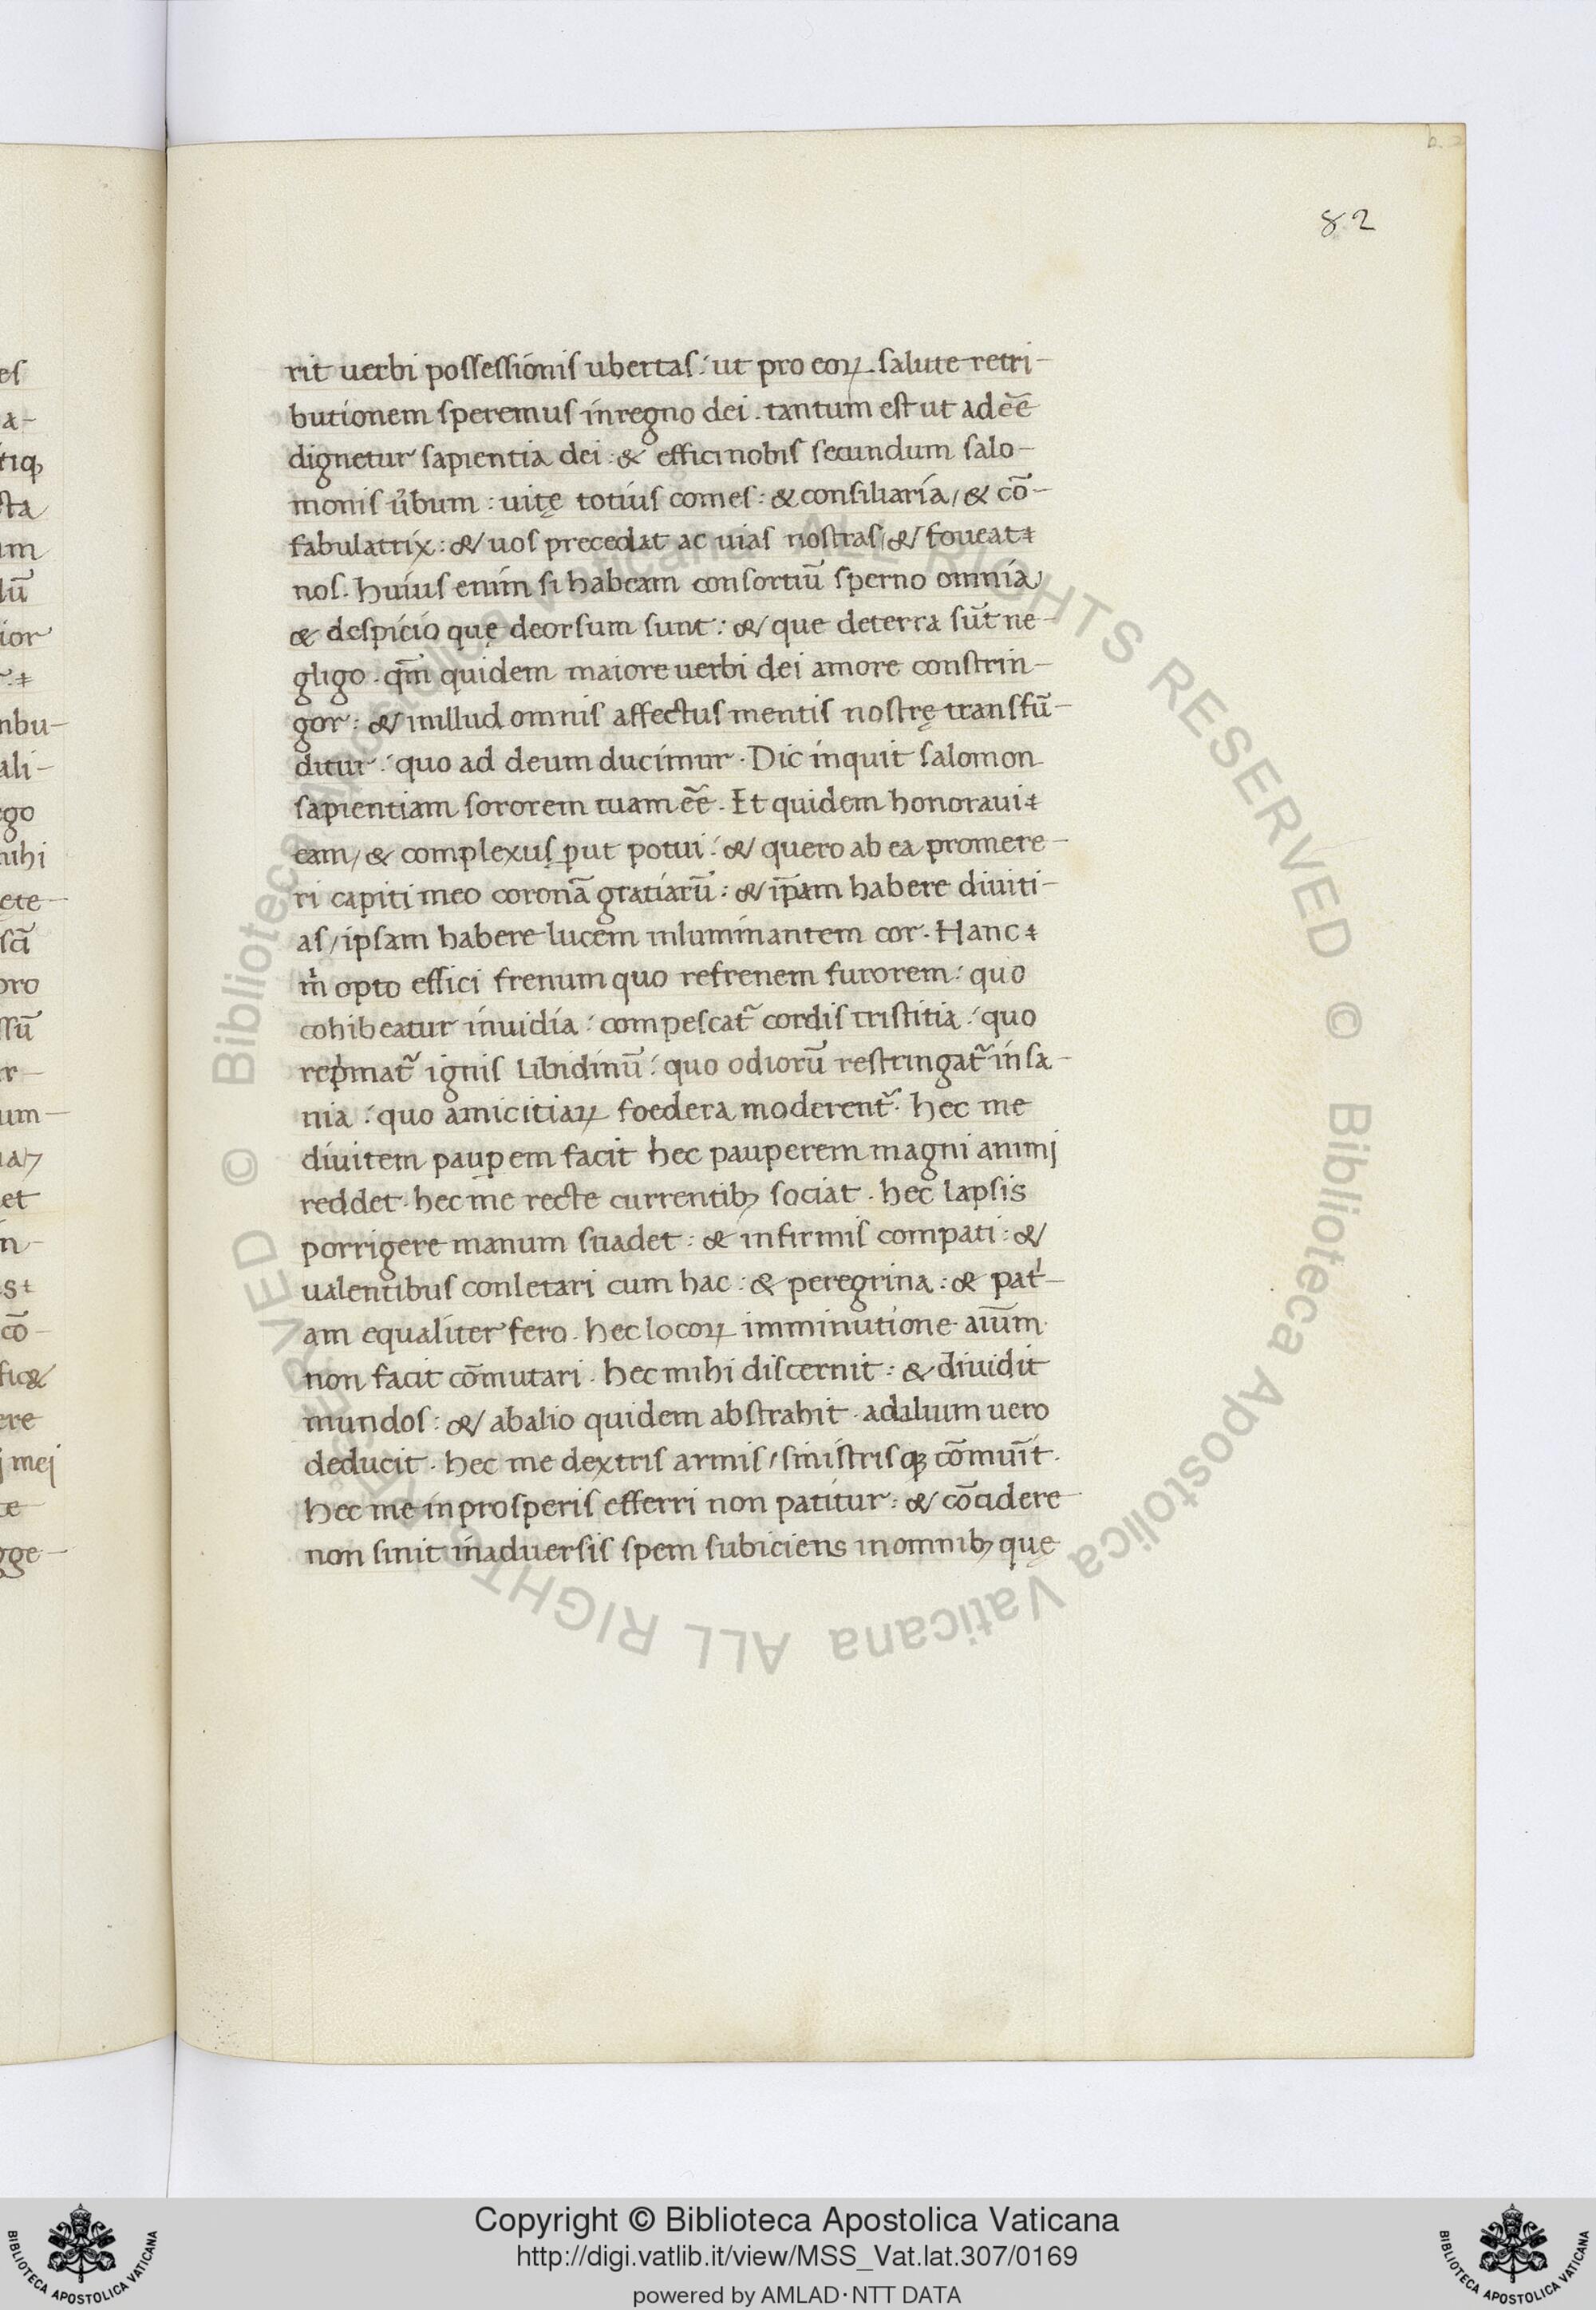 82
rit uerbi possessionis ubertas : ut pro eoꝝ salute retri-
butionem speremus inregno dei . tantum est ut adēē
dignetur sapientia dei : & effici nobis secundum salo-
monis ủbum : uitę totius comes : & consiliaria / & cō-
fabulatrix : & uos precedat ac uias nostras / & foueat
nos . huius enim si habeam consortiū sperno omnia
& despicio quę deorsum sunt : & que deterra sūt ne-
gligo . qm̄ quidem maiore uerbi dei amore constrin-
gor : & inillud omnis affectus mentis nostrę transfū-
ditur : quo ad deum ducimur . Dic inquit salomon
sapientiam sororem tuam ēē . Et quidem honoraui
eam / & complexus ꝓut potui : & quero ab ea promere-
ri capiti meo coronā gratiarū : & ip̄am habere diuiti-
as / ipsam habere lucem inluminantem cor . Hanc
m̉ opto effici frenum quo refrenem furorem : quo
cohibeatur inuidia : compescat̃ cordis tristitia : quo
rep̉mat̃ ignis libidinū : quo odiorū restringat̃ insa-
nia : quo amicitiaꝝ foedera moderent̃ . hec me
diuitem pauꝑem facit hec pauperem magni animj
reddet . hec me recte currentibꝫ sociat . hec lapsis
porrigere manum suadet : & infirmis compati : &
ualentibus conletari cum hac : & peregrina : & pat̉-
am equaliter fero . hec locoꝝ imminutione aīum
non facit cōmutari . hec mihi discernit : & diuidit
mundos : & abalio quidem abstrahit . adalium uero
deducit . hec me dextris armis / sinistrisqꝫ cōmuīt .
hec me inprosperis efferri non patitur : & cōcidere
non sinit inaduersis spem subiciens inomnibꝫ quę
Copyright © Biblioteca Apostolica Vaticana
http://digi.vatlib.it/view/MSS_Vat.lat.307/0169
powered by AMLAD·NTT DATA